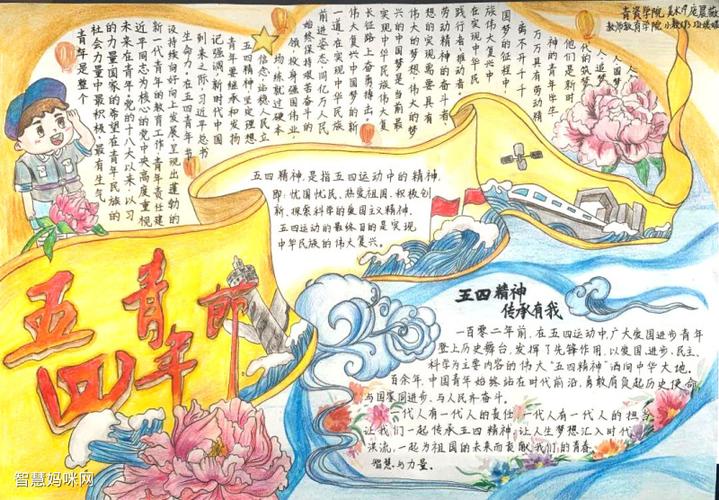 青年是整个
社会力量中最积极、最有生气
的力量国家的希望在青年民族的
未来在青年。党的十八大以来,以习
近平同志为核心的党中央高度重视
新一代青年的教育工作,青年责任建
设持续向好向上发展呈现出蓬勃的
生命力。在五四青年节
到来之际,习近平总书
记强调,新时代中国
青年要继承和发扬
五四精神,坚定理想
信念,站稳人民立
场,练就过硬本
领,投身强国伟业
始终保持艰苦奋斗的
前进姿态,同亿万人民
一道,在实现中华民族
伟大复兴中国梦的新
长征路上奋勇搏出。
实现中华民族伟大复
兴的中国梦是当前最
伟大的梦想,伟大的梦
想的实现需要具有
劳动精神的奋斗者、
践行者、推动者。
在实现中华民
族伟大复兴中
国梦的征程中,
离不开千千
万万具有劳动精
神的青年学生
他们是新时
代的筑梦
人、追梦
人、圆梦
五四精神,是指五四运动中的精神,
即:忧国忧民、热爱祖国、积极创
新、探索科学的爱国主义精神。
五四运动的最终目的是实现
中华民族的伟大复兴。
五四青年节
五四精神
传承有我
一百零二年前,在五四运动中,广大爱国进步青年
登上历史舞台,发挥了先锋作用,以爱国、进步、民主、
科学为主要内容的伟大“五四精神”洒向中华大地。
百余年,中国青年始终站在时代前沿,勇敢肩负起历史使命
与国家同进步,与人民齐奋斗。
一代人有一代人的责任,一代人有一代人的担当
让我们一起传承五四精神,让人生梦想汇入时代
洪流,一起为祖国的未来而贡献我们的青春、
智慧与力量。
智慧妈咪网